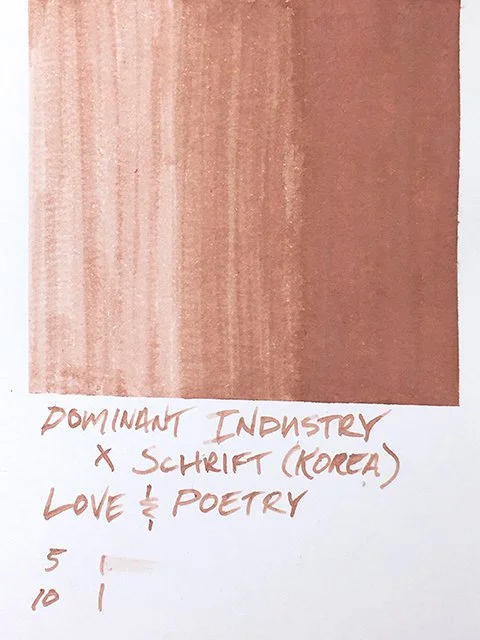 DOMINANT INDUSTRY
X SCHRIFT (KOREA)
LOVE & POETRY
5 |
10 |